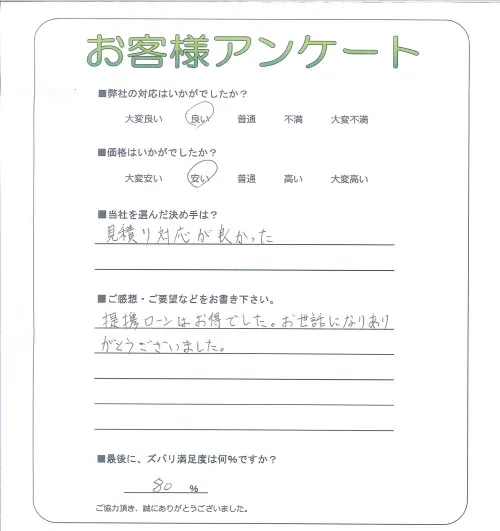 お客様アンケート
■弊社の対応はいかがでしたか？
大変良い 良い 普通 不満 大変不満
■価格はいかがでしたか？
大変安い 安い 普通 高い 大変高い
■当社を選んだ決め手は？
見積り対応が良かった
■ご感想・ご要望などをお書き下さい。
提携ローンはお得でした。お世話になりあり
がとうございました。
■最後に、ズバリ満足度は何％ですか？
80 ％
ご協力頂き、誠にありがとうございました。